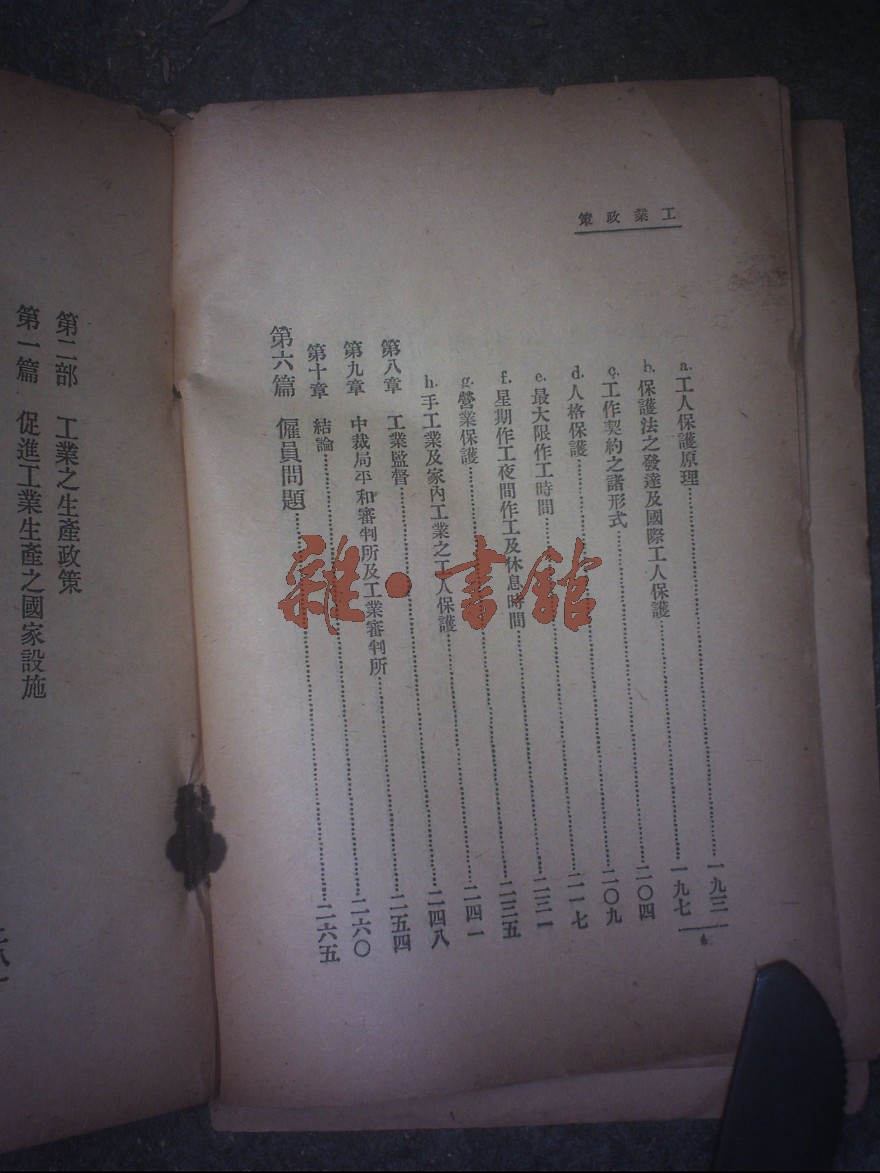 工業政策
a. 工人保護原理……一九三
b. 保護法之發達及國際工人保護……一九七
c. 工作契約之諸形式……二〇四
d. 人格保護……二〇九
e. 最大限作工時間……二一七
f. 星期作工夜間作工及休息時間……二三一
g. 營業保護……二三五
h. 手工業及家內工業之工人保護……二四一
第八章 工業監督……二四八
第九章 中裁局平和審判所及工業審判所……二五四
第十章 結論……二六〇
第六篇 僱員問題……二六五
第二部 工業之生產政策
第一篇 促進工業生產之國家設施
雜·書館